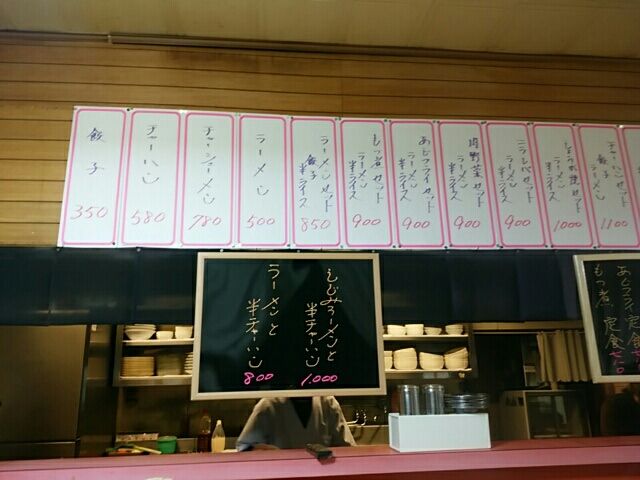 餃子
350
チャーハン
580
チャーシューメン
780
ラーメン
500
ラーメンセット
餃子
半ライス
850
もつ煮セット
ラーメン
半ライス
900
あじフライセット
ラーメン
半ライス
900
野菜セット
ラーメン
半ライス
900
ニラレバセット
ラーメン
半ライス
900
しょうが焼セット
ラーメン
半ライス
1000
チャーハンセット
餃子
ラーメン
1100
しじみラーメンと
半チャーハン
1,000
ラーメンと
半チャーハン
800
あじフライ定食
もつ煮定食